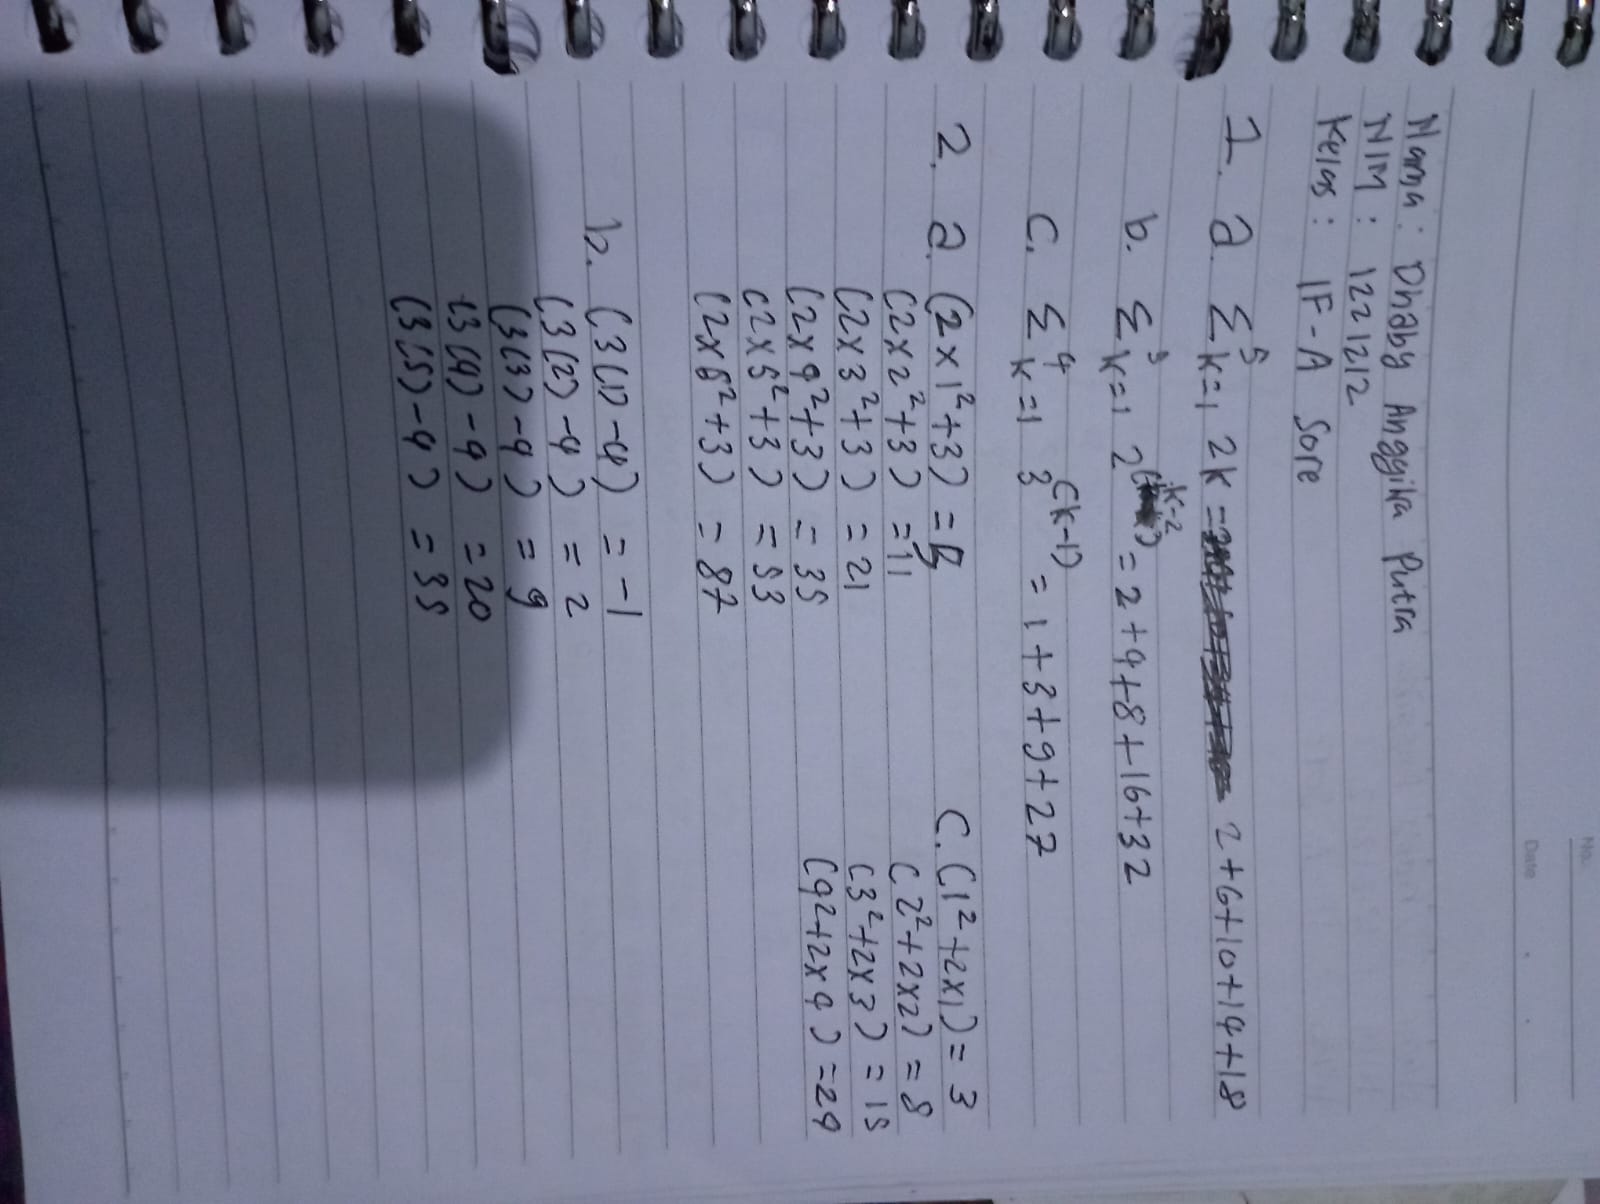 No.
Date
Nama : Dhaby Anggika Putra
NIM : 1221212
Kelas : IF-A Sore
1. a. Σ⁵ k=1 2k = 2+6+10+14+18
b. Σ⁵ k=1 2^(k-2) = 2+4+8+16+32
c. Σ⁴ k=1 3^(k-1) = 1+3+9+27
2. a. (2x1²+3) = 5
(2x2²+3) = 11
(2x3²+3) = 21
(2x4²+3) = 35
(2x5²+3) = 53
(2x6²+3) = 87
b. (3(1)-4) = -1
(3(2)-4) = 2
(3(3)-4) = 9
(3(4)-4) = 20
(3(5)-4) = 35
c. (1²+2x1) = 3
(2²+2x2) = 8
(3²+2x3) = 15
(4²+2x4) = 24